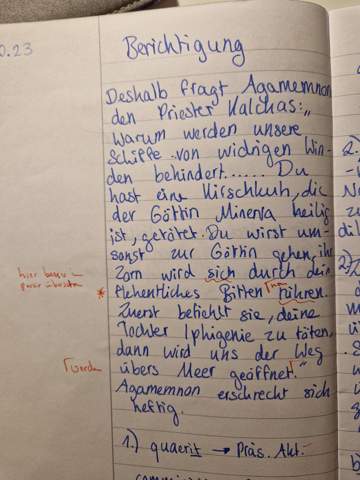 0.23
Berichtigung
Deshalb fragt Agamemnon
den Priester Kalchas: „
Warum werden unsere
Schiffe von widrigen Win-
den behindert...... Du
hast eine Hirschkuh, die
der Göttin Minerva heilig
ist, getötet. Du wirst um-
sonst zur Göttin gehen, ihr
Zorn wird sich durch dein
flehentliches Bitten rühren.
Zuerst befiehlt sie, deine
Tochter Iphigenie zu töten,
dann wird uns der Weg
übers Meer geöffnet."
Agamemnon erschrect sich
heftig.
1.) quaerit → Präs. Akt.
hier besser
werden
2.